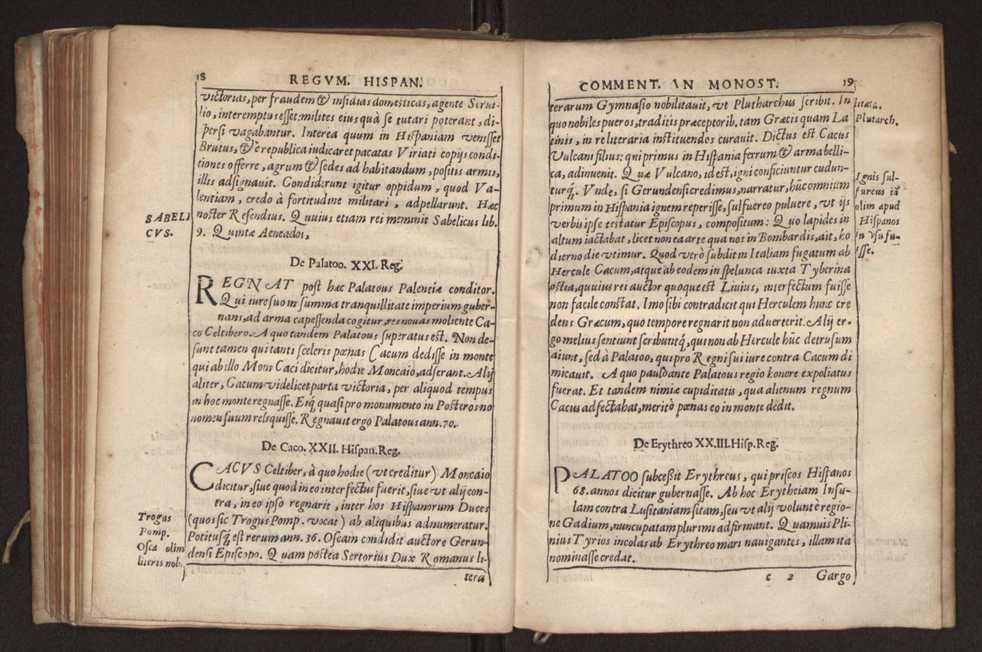 18 REGVM. HISPAN.
victorias, per fraudem & insidias domesticas, agente Seruilio,
lio, interemptus esset: milites eius quà se tutari poterant, di-
spersi vagabantur. Interea quum in Hispaniam venisset
Brutus, & è republica iudicaret pacatas Viriati copijs condi-
tiones offerre, agrum & sedes ad habitandum, positis armis,
illis adsignauit. Condiderunt igitur oppidum, quod Va-
lentiam, credo à fortitudine militari, adpellarunt. Hæc
noster Resendius. Quuius etiam rei meminit Sabelicus lib.
9. Quintæ Aeneados.
SABELI
CVS.
De Palatoo. XXI. Reg.
REGNAT post hæc Palatous Palentiæ conditor.
Qui iure suo in summa tranquillitate imperium guber-
nans, ad arma capessenda cogitur, res nouas moliente Ca-
co Celtibero. A quo tandem Palatous superatus est. Non de-
sunt tamen qui tanti sceleris pœnas Cacum dedisse in monte
qui ab illo Mons Caci dicitur, hodie Moncaio, adserant. Alij
aliter, Cacum videlicet parta victoria, per aliquod tempus
in hoc monte regnasse. Eiq́; quasi pro monumento in Posteros no
nomen suum reliquisse. Regnauit ergo Palatous ann. 70.
De Caco. XXII. Hispan. Reg.
CACVS Celtiber, à quo hodie (vt creditur) Moncaio
dicitur, siue quod in eo interfectus fuerit, siue vt alij con-
tra, in eo ipso regnarit, inter hos Hispanorum Duces
(quos sic Trogus Pomp. vocat) ab aliquibus adnumeratur.
Potitusq́; est rerum ann. 36. Oscam condidit auctore Gerun-
densi Episcopo. Quam postea Sertorius Dux Romanus li-
Trogus
Pomp.
Osca olim
literis nob.
tera
COMMENT. IN MONOST. 19
terarum Gymnasio nobilitauit, vt Plutharchus scribit. In
quo nobiles pueros, traditis præceptorib. tam Græcis quam La
tinis, in re literaria instituendos curauit. Dictus est Cacus
Vulcani filius: qui primus in Hispania ferrum & arma belli-
ca, adinuenit. Quæ Vulcano, id est, igni conficiuntur cudun-
turq́;. Vnde, si Gerundensi credimus, narratur, hūc omnium
primum in Hispania ignem reperisse, sulfureo puluere, vt ijs
verbis ipse testatur Episcopus, compositum: Quo lapides in
altum iactabat, licet non ea arte qua nos in Bombardis, ait, ho
dierno die vtimur. Quod verò subdit in Italiam fugatum ab
Hercule Cacum, atque ab eodem in spelunca iuxta Tyberina
ostea, quuius rei auctor quoque est Liuius, interfectum fuisse
non facile constat. Imo sibi contradicit qui Herculem hunc cre
dens Græcum, quo tempore regnarit non aduerterit. Alij er-
go melius sentiunt scribuntq́;, qui non ab Hercule hūc detrusum
aiunt, sed à Palatoo, qui pro Regni sui iure contra Cacum di
micauit. A quo paulò ante Palatous regio honore expoliatus
fuerat. Et tandem nimiæ cupiditatis, qua alienum regnum
Cacus adfectabat, meritò pœnas eo in monte dedit.
Plutarch.
Ignis sul-
fureus iā
olim apud
Hispanos
in vsu fu-
isse.
De Erythreo XXIII. Hisp. Reg.
PALATOO subceßit Erythreus, qui priscos Hispanos
68. annos dicitur gubernasse. Ab hoc Erytheiam Insu-
lam contra Lusitaniam sitam, seu vt alij volunt è regio-
ne Gadium, nuncupatam plurimi adfirmant. Quamuis Pli-
nius Tyrios incolas ab Erythreo mari nauigantes, illam ita
nominasse credat.
c 2 Gargo